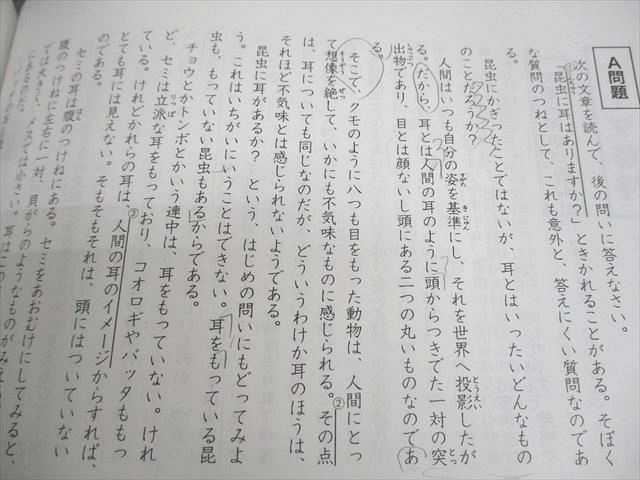 A問題
次の文章を読んで、後の問いに答えなさい。
「昆虫に耳はありますか?」ときかれることがある。そぼく
な質問のつねとして、これも意外と、答えにくい質問なのであ
る。
昆虫にかぎったことではないが、耳とはいったいどんなもの
のことだろうか?
人間はいつも自分の姿を基準にし、それを世界へ投影したが
る。だから、耳とは人間の耳のように頭からつきでた一対の突
出物であり、目とは顔ないし頭にある二つの丸いものなのであ
る。
そこで、クモのように八つも目をもった動物は、人間にとっ
て想像を絶して、いかにも不気味なものに感じられる。②その点
は、耳についても同じなのだが、どういうわけか耳のほうは、
それほど不気味とは感じられないようである。
昆虫に耳があるか? という、はじめの問いにもどってみよ
う。これはいちがいにいうことはできない。耳をもっている昆
虫も、もっていない昆虫もあるからである。
チョウとかトンボとかいう連中は、耳をもっていない。けれ
ど、セミは立派な耳をもっており、コオロギやバッタももっ
ている。けれどかれらの耳は、③人間の耳のイメージからすれば、
とても耳には見えない。そもそもそれは、頭にはついていない
のである。
セミの耳は腹のつけねにある。セミをあおむけにしてみると、
腹のつけねに左右に一対、貝がらのようなものがみえ
では大きく、メスでは小さい。耳はこの